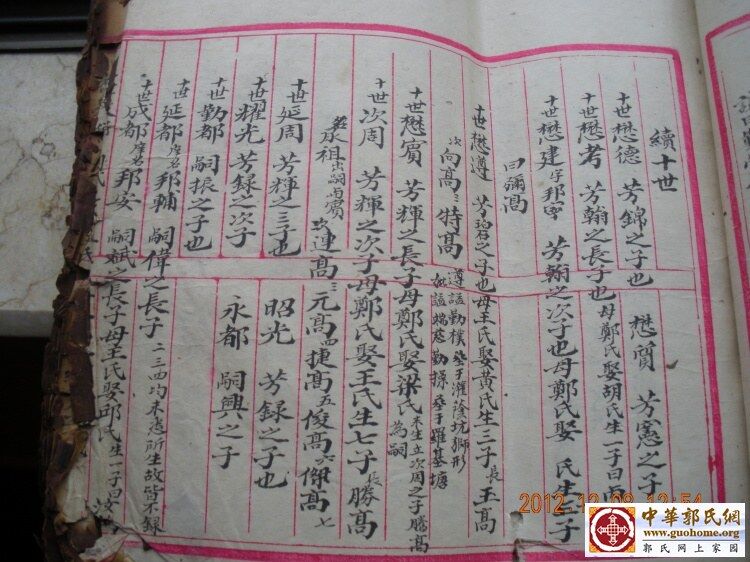 續十世
十世懋德 芳錦之子也 懋質 芳憲之子
十世懋考 芳翰之長子也母鄭氏娶胡氏生一子曰
十世懋建字邦寧 芳翰之次子也母鄭氏娶 氏生一子
曰彌高
十世懋遵 芳碧之子也母王氏娶黃氏生三子長玉高
次向高三特高 遵謚勤樸塟于灌蔭坑獅形
妣謚端慈勤操塟于羅基塘
十世懋賓 芳輝之長子母鄭氏娶梁氏未生立次周之子勝高為嗣
十世次周 芳輝之次子母鄭氏娶王氏生七子長勝高
承祖出嗣懋賓次連高三元高四捷高五俊高六傑高七
十世延周 芳輝之三子也 昭光 芳録之子也
十世耀光 芳録之次子 永都 嗣興之子
十世勤都 嗣振之子也
十世延都庠名邦輔 嗣偉之長子 二三四均未悉所生故皆不錄
十世成都庠名邦安 嗣斌之長子母王氏娶邱氏生一子曰汝
2012 12 08 12:54
中華郭氏網
www.guohome.org
郭氏网上家园